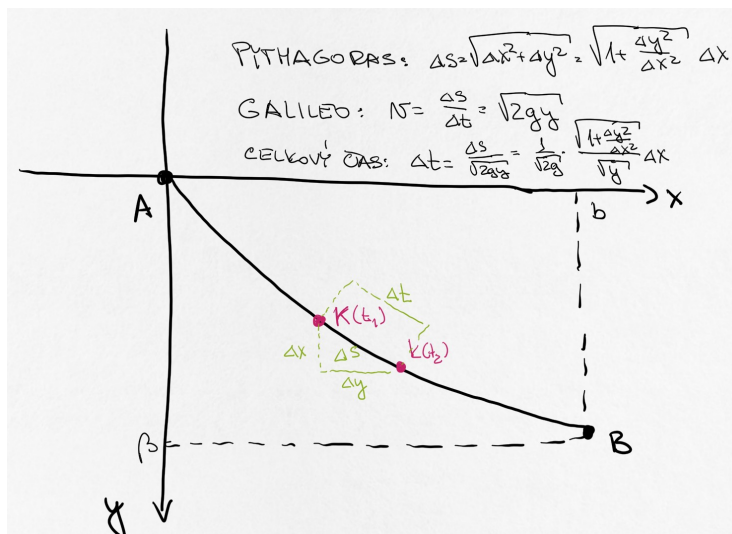 PYTHAGORAS: ΔS=√(Δx²+Δy²) = √(1+Δy²/Δx²) Δx
GALILEO: v = ΔS/Δt = √(2gy)
CELKOVÝ ČAS: Δt = ΔS/√(2gy) = 1/√(2g) · √(1+Δy²/Δx²)/√y Δx
A
b
x
K(t₁)
Δt
Δx
ΔS
K(t₂)
Δy
β
B
y